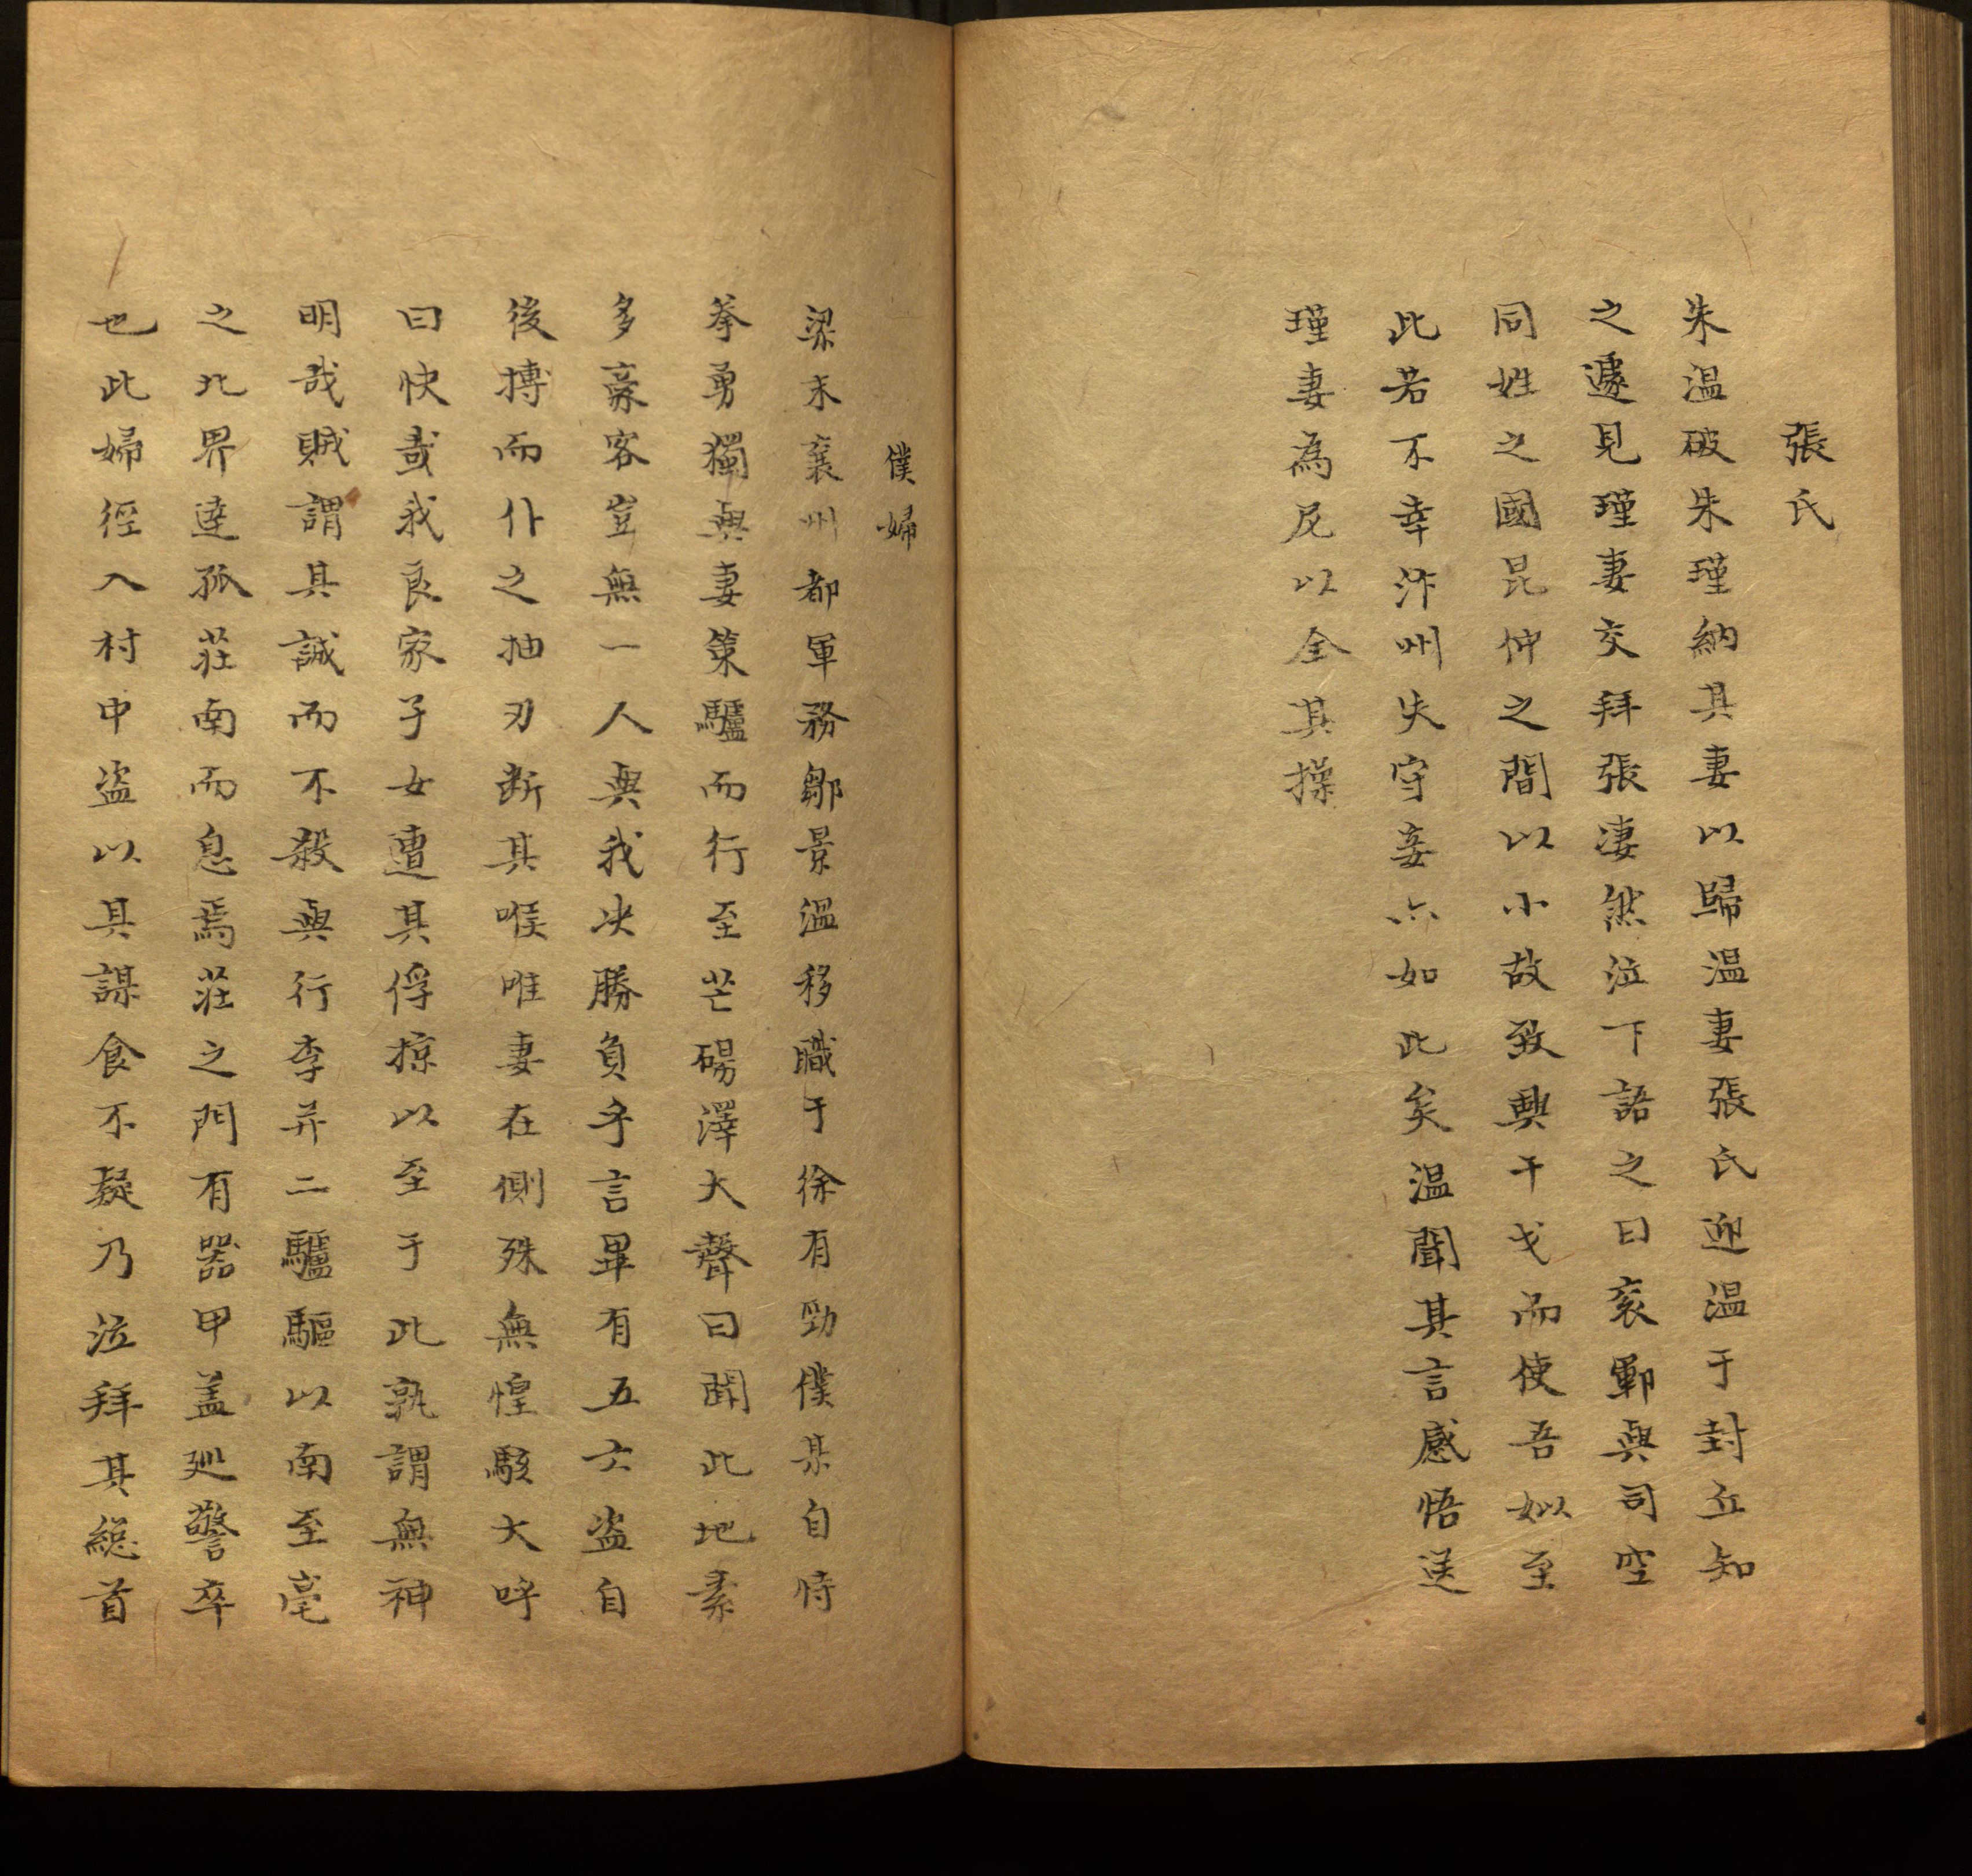 張氏
朱温破朱瑾納其妻以歸温妻張氏迎温于封丘知
之遽見瑾妻交拜張凄然泣下語之曰兖鄆與司空
同姓之國昆仲之間以小故致興干戈而使吾姒至
此若不幸汴州失守妾亦如此矣温聞其言感悟送
瑾妻為尼以全其操
僕婦
梁末襄州都軍務鄒景温移職于徐有勁僕某自恃
拳勇獨與妻策驢而行至芒碭澤大聲曰聞此地素
多豪客豈無一人與我决勝負乎言畢有五六盗自
後搏而仆之抽刃断其喉唯妻在側殊無惶駭大呼
曰快哉我良家子女遭其俘掠以至于此孰謂無神
明哉賊謂其誠而不殺與行李并二驢驅以南至亳
之北界達孤莊南而息焉莊之門有器甲盖廵警卒
也此婦徑入村中盗以其謀食不疑乃泣拜其総首